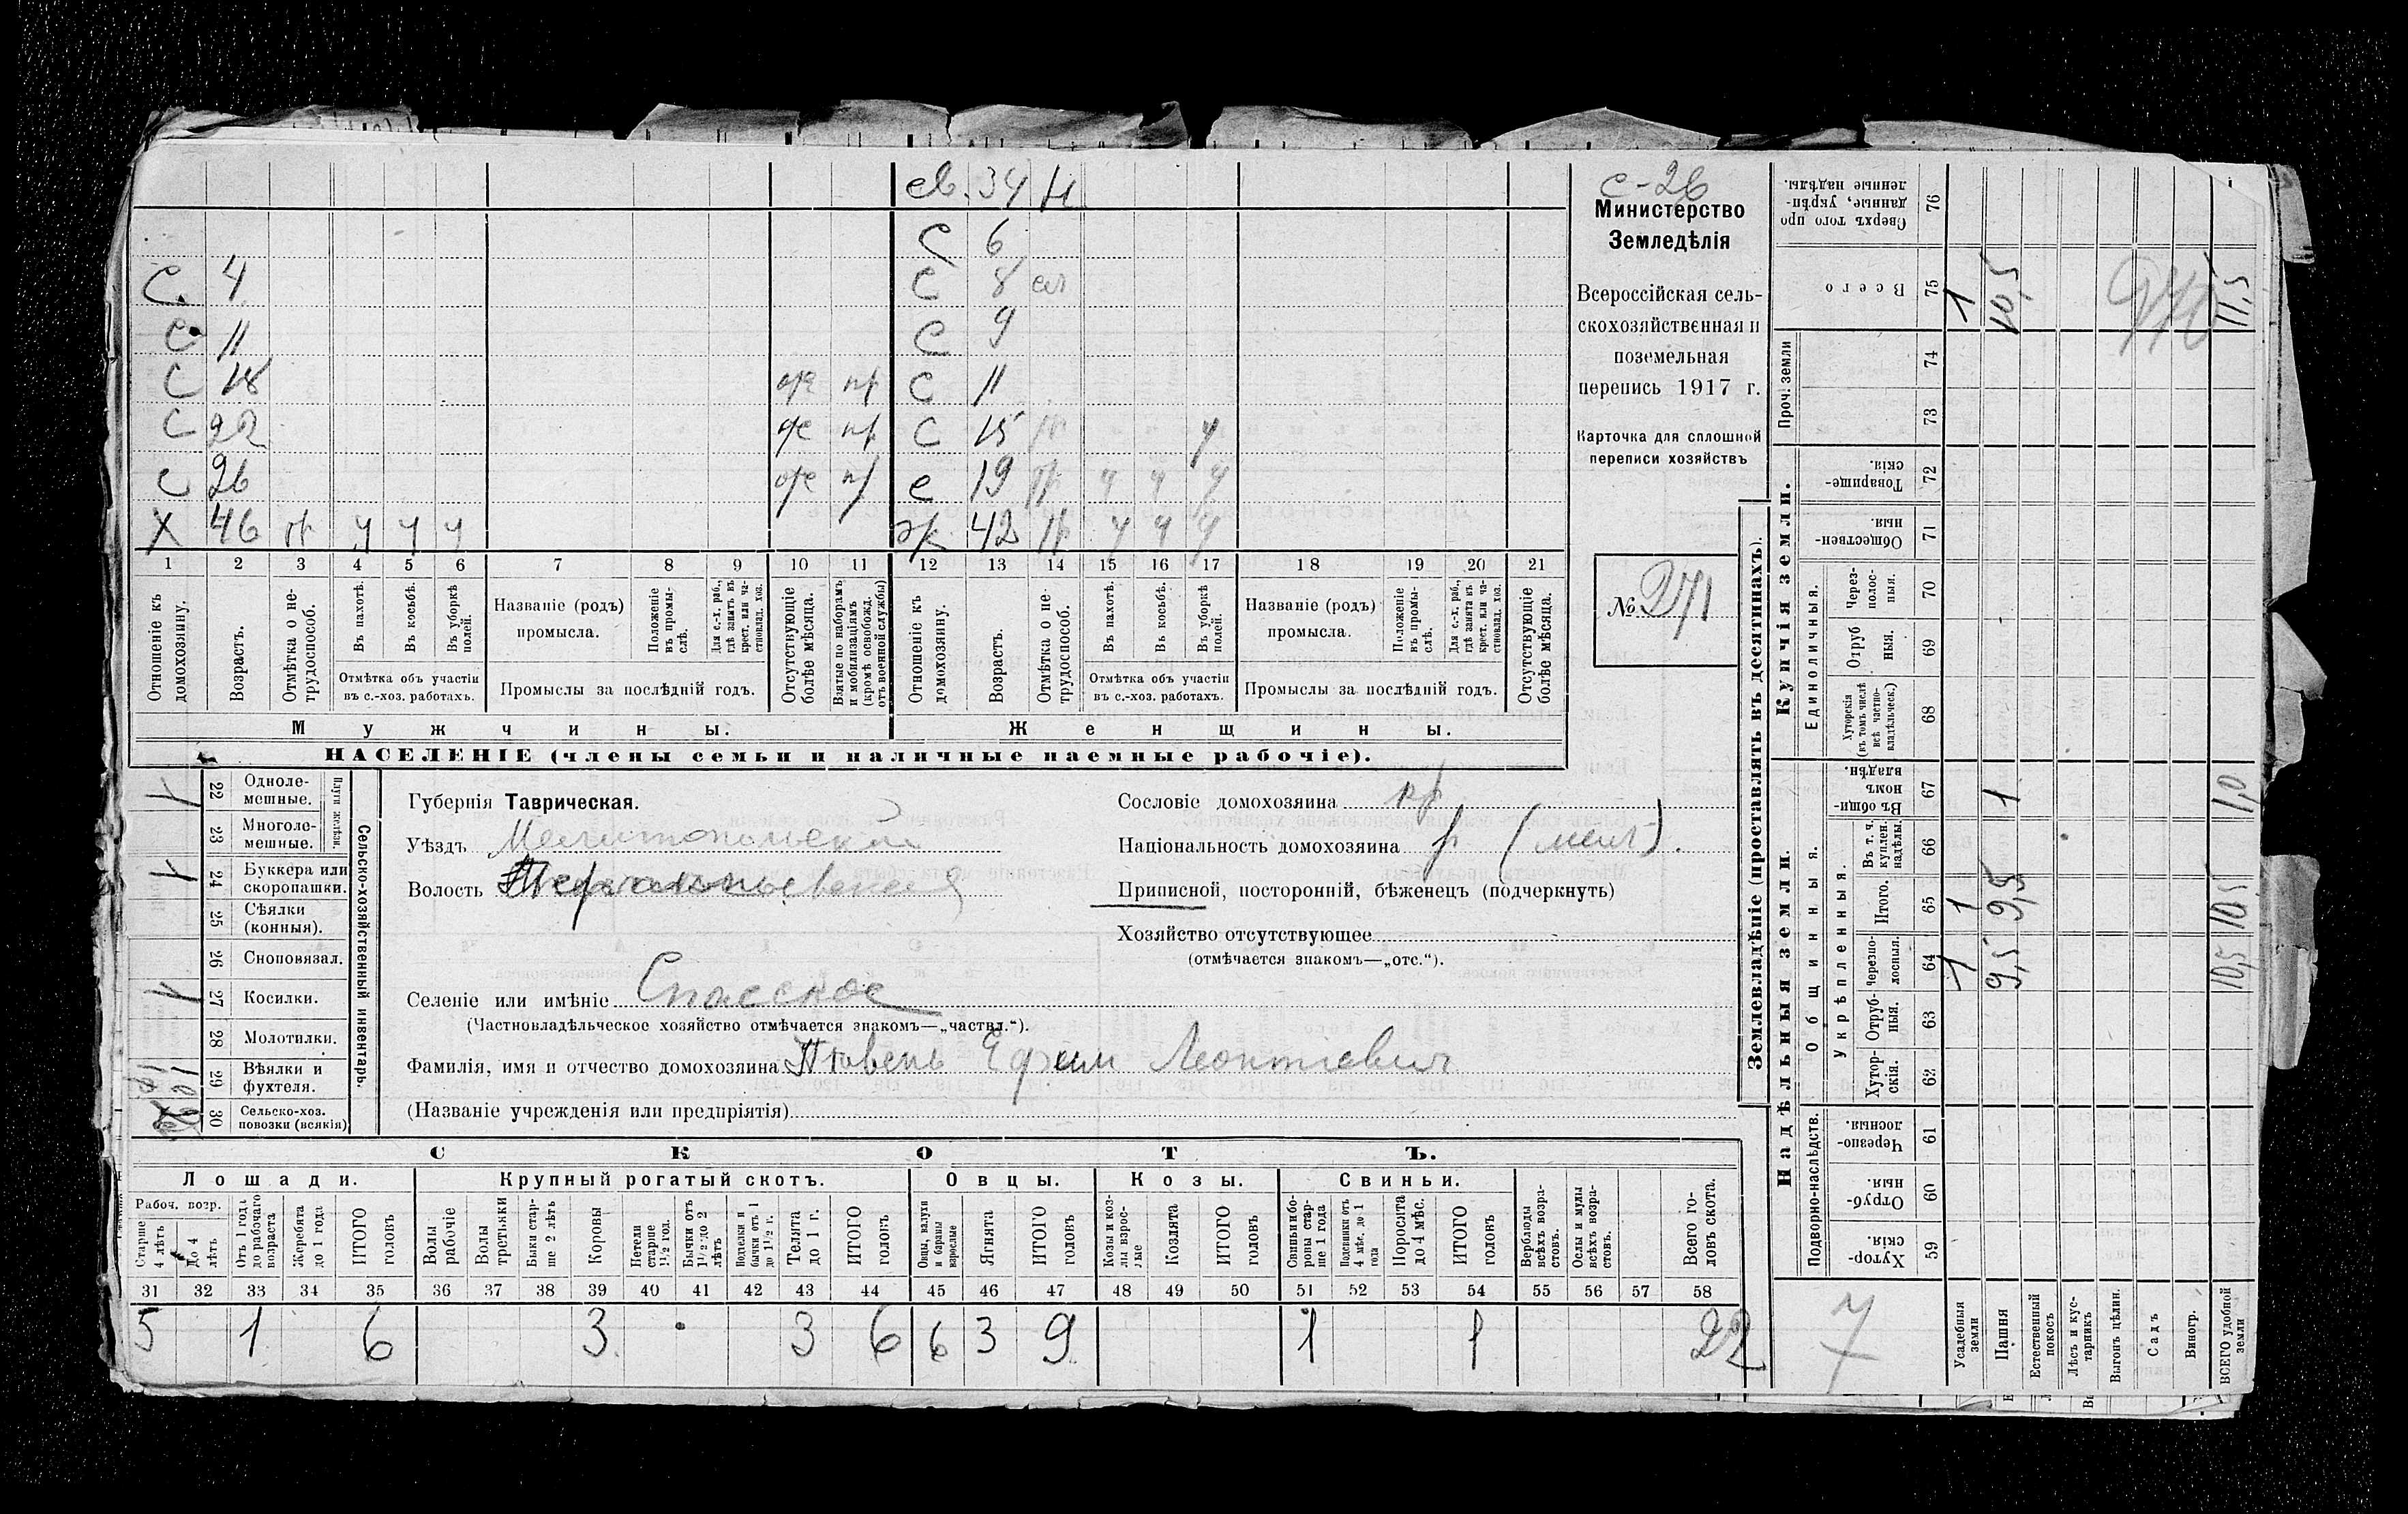 св. 34 н
С 6
С. 4 С 8 сл
С. 11 С 9
С 18 арс пр С 11
С 22 арс пр С 15 у
С 26 арс пр С 19 пр у у у
Х 46 пр у у у ж 42 пр у у у
1 2 3 4 5 6 7 8 9 10 11 12 13 14 15 16 17 18 19 20 21
Отношеніе къ домохозяину.
Возрастъ.
Отмѣтка о нетрудоспособ.
Въ пахотѣ.
Въ косьбѣ.
Въ уборкѣ полей.
Отмѣтка объ участіи
въ с.-хоз. работахъ.
Названіе (родъ)
промысла.
Положеніе въ промыслѣ.
Для с.-х. раб., гдѣ занятъ въ крест. или частновлад. хоз.
Промыслы за послѣдній годъ.
Отсутствующіе болѣе мѣсяца.
Взятые по наборамъ и мобилизаціямъ (кромѣ освобожд. отъ военной службы)
Отношеніе къ домохозяину.
Возрастъ.
Отмѣтка о нетрудоспособ.
Въ пахотѣ.
Въ косьбѣ.
Въ уборкѣ полей.
Отмѣтка объ участіи
въ с.-хоз. работахъ.
Названіе (родъ)
промысла.
Положеніе въ промыслѣ.
Для с.-х. раб., гдѣ занята въ крест. или частновлад. хоз.
Промыслы за послѣдній годъ.
Отсутствующіе болѣе мѣсяца.
Мужчины. Женщины.
НАСЕЛЕНІЕ (члены семьи и наличные наемные рабочіе).
с-26
Министерство
Земледѣлія
Всероссійская сель-
скохозяйственная и
поземельная
перепись 1917 г.
Карточка для сплошной
переписи хозяйствъ
№ 271
Сельско-хозяйственный инвентарь.
Плуги желѣзн.
22 Одноле-
мешные. 1
23 Многоле-
мешные.
24 Буккера или
скоропашки. 1
25 Сѣялки
(конныя).
26 Сноповязал.
27 Косилки. 1
28 Молотилки.
29 Вѣялки и
фухтеля.
30 Сельско-хоз.
повозки (всякія)
Губернія Таврическая.
Уѣздъ Мелитопольскій
Волость
Селеніе или имѣніе Спасское
(Частновладѣльческое хозяйство отмѣчается знакомъ—„частвл.“).
Фамилія, имя и отчество домохозяина Пивень Ефим Леонтіевич
(Названіе учрежденія или предпріятія)
Сословіе домохозяина кр
Національность домохозяина р (мал).
Приписной, посторонній, бѣженецъ (подчеркнуть)
Хозяйство отсутствующее
(отмѣчается знакомъ—„отс.“).
СКОТЪ.
Лошади. Крупный рогатый скотъ. Овцы. Козы. Свиньи.
Рабоч. возр.
Старше 4 лѣтъ
До 4 лѣтъ
Отъ 1 года до рабочаго возраста
Жеребята до 1 года
ИТОГО головъ
Волы рабочіе
Волы третьяки
Быки старше 2 лѣтъ
Коровы
Нетели старше 1½ год.
Бычки отъ 1½ до 2 лѣтъ
Подтелки и бычки отъ 1 до 1½ г.
Телята до 1 г.
ИТОГО головъ
Овцы, валухи и бараны взрослые
Ягнята
ИТОГО головъ
Козы и козлы взрослые
Козлята
ИТОГО головъ
Свиньи и боровы старше 1 года
Подсвинки отъ 4 мѣс. до 1 года
Поросята до 4 мѣс.
ИТОГО головъ
Верблюды всѣхъ возрастовъ.
Ослы и мулы всѣхъ возрастовъ.
Всего головъ скота.
31 32 33 34 35 36 37 38 39 40 41 42 43 44 45 46 47 48 49 50 51 52 53 54 55 56 57 58
5 1 6 3 3 6 6 3 9 1 1 22
Землевладѣніе (проставлять въ десятинахъ).
Купчія земли.
Надѣльныя земли.
Проч. земли
Единоличныя.
Общинныя.
Укрѣпленныя.
Подворно-наслѣдств.
Сверхъ того проданные, укрѣпленные надѣлы. 76
Всего 75 1 10,5 11,5
74
73
Товарищескія. 72
Общественныя. 71
Черезполосныя. 70
Отрубныя. 69
Хуторскія (въ томъ числѣ всѣ частновладѣльческ.) 68
Въ общинномъ владѣн. 67 1 1,0
Въ т. ч. куплен. надѣлы. 66
Итого. 65 1 9,5 10,5
Черезполосныя. 64 1 9,5 10,5
Отрубныя. 63
Хуторскія. 62
Черезполосныя. 61
Отрубныя. 60
Хуторскія. 59
7
Усадебныя земли
Пашня
Естественный покосъ
Лѣсъ и кустарникъ
Выгонъ цѣлин.
Садъ
Виногр.
ВСЕГО удобной земли